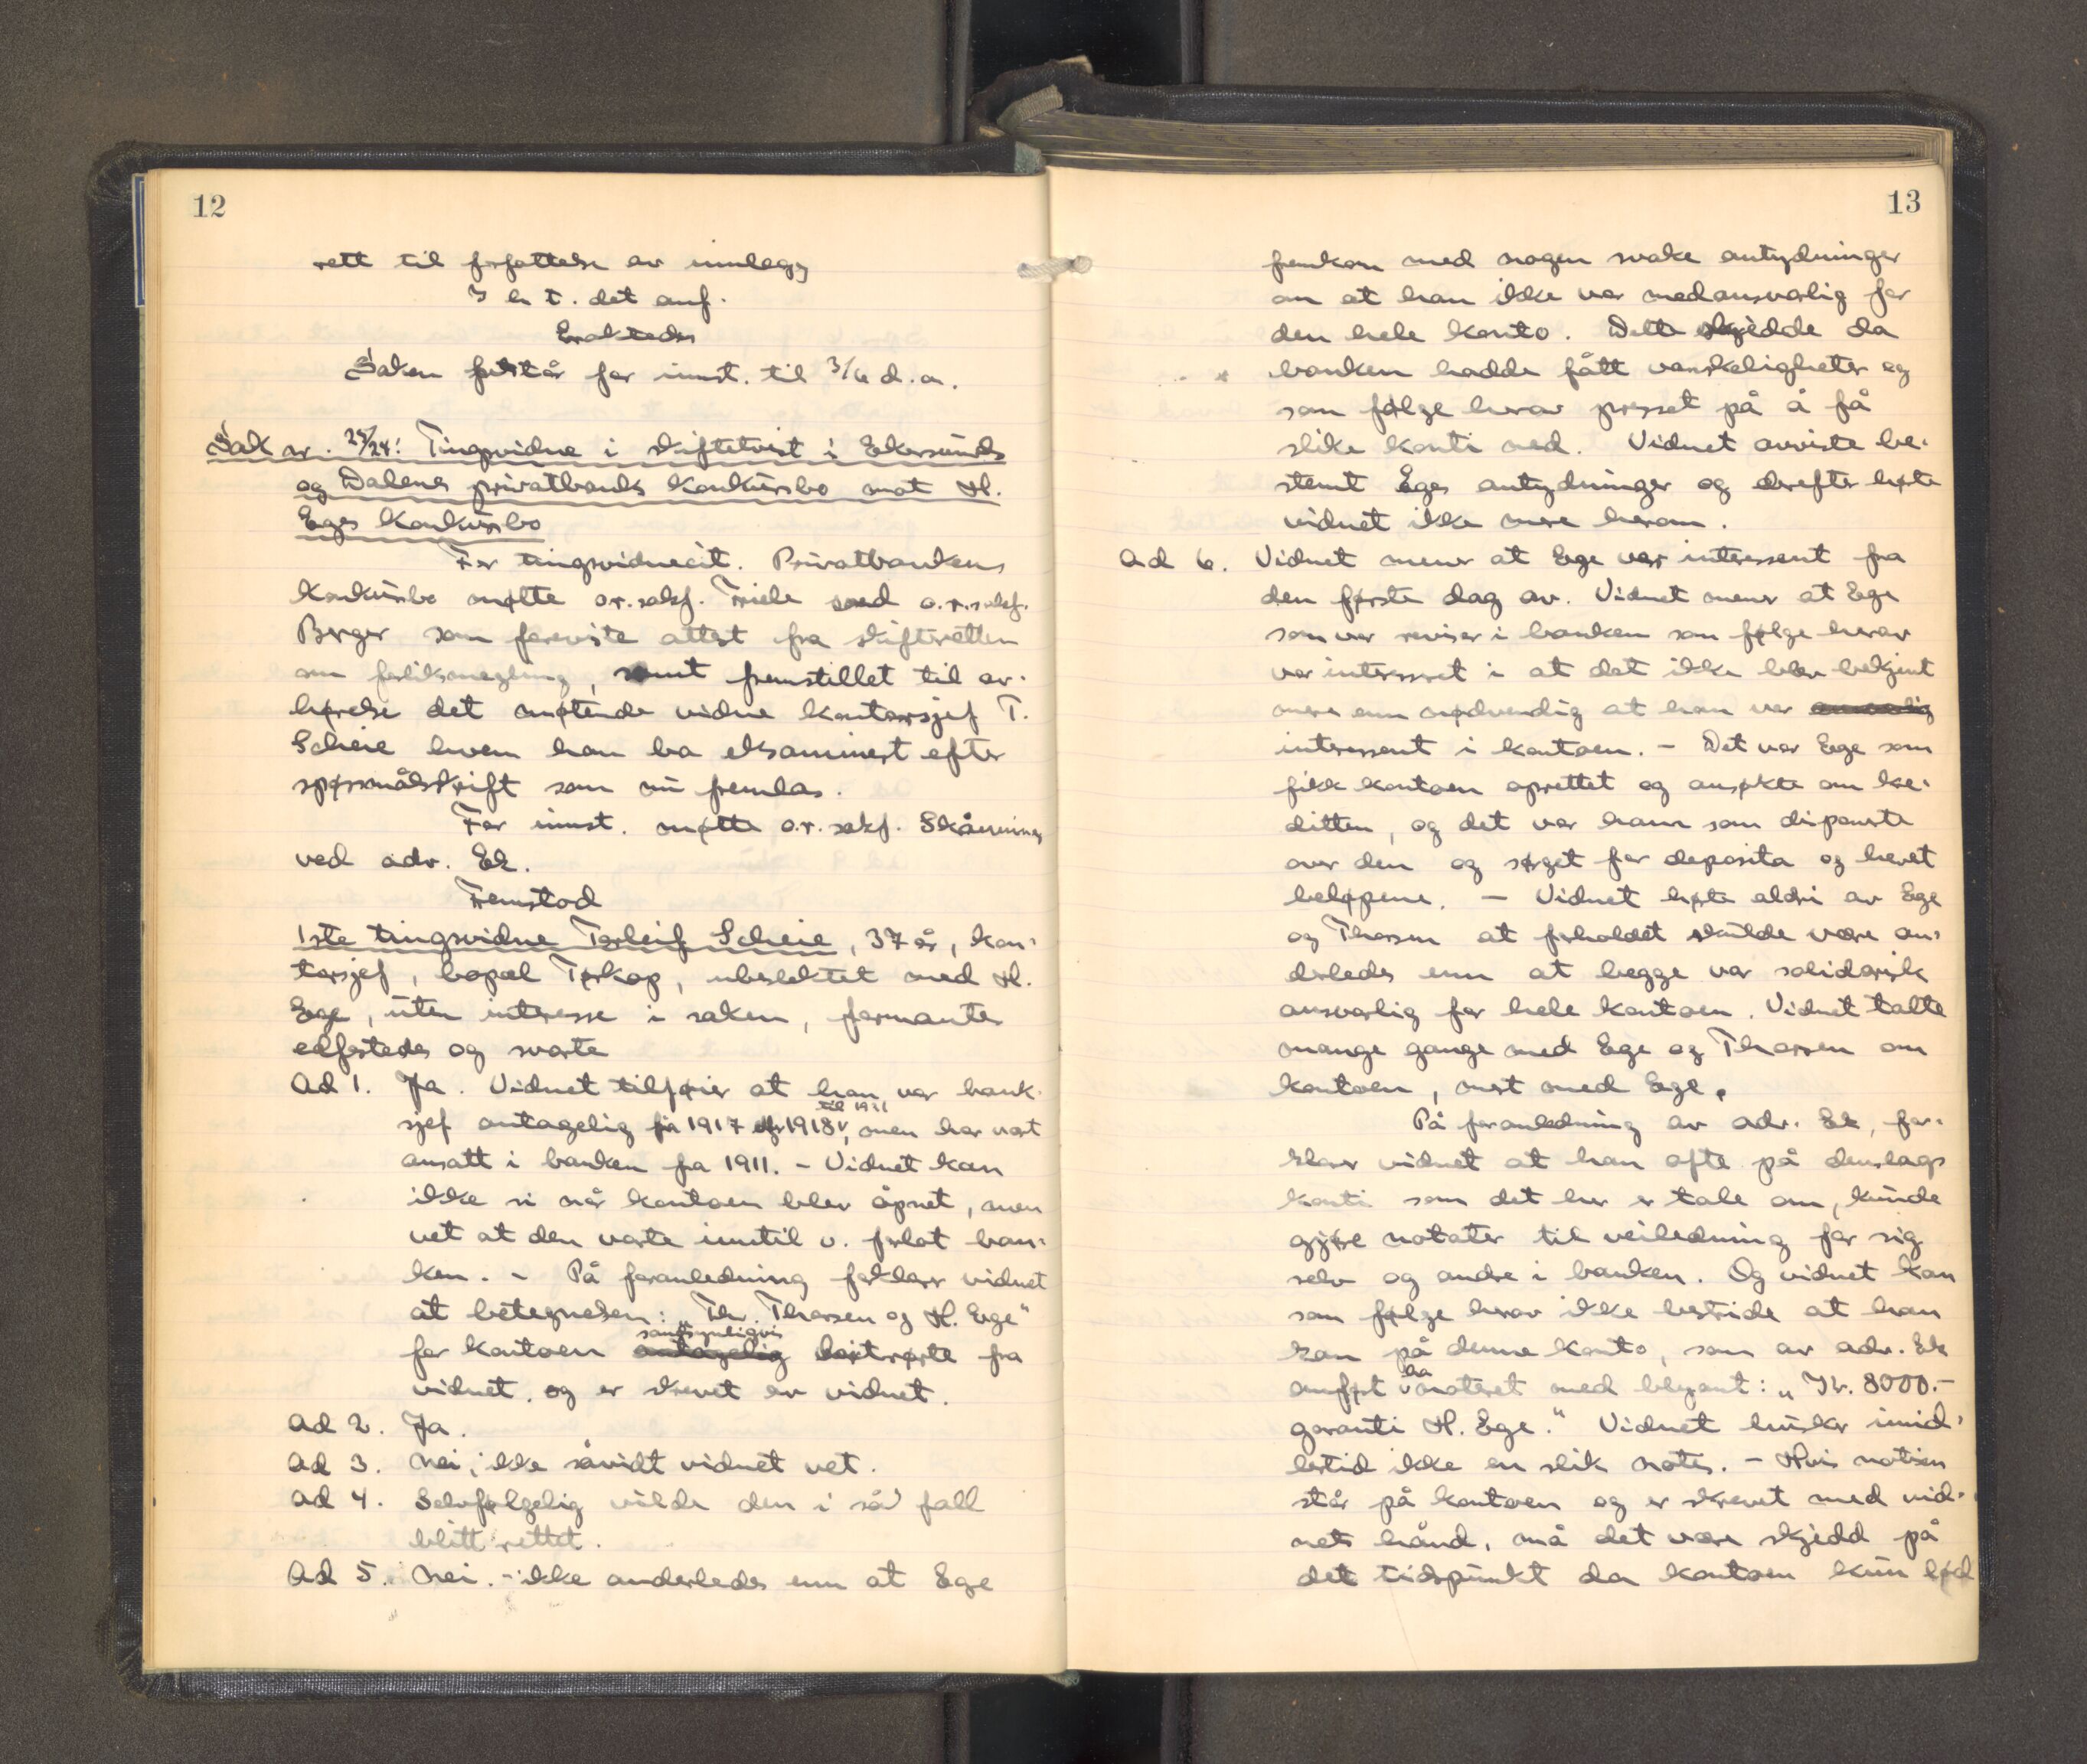 12
rett til forfattelse av innlegg
I h t. det anf.
Eraktedes
Saken utstår for innst. til 3/6 d. a.
Sak nr. 25/24: Tingsvidne i skiftetvist i Ekersunds
og Dalenes privatbanks konkursbo mot H.
Eges konkursbo
For tingsvidnecit. Privatbankens
konkursbo møtte o.r.sakf. Friele med o.r.sakf.
Berger som foreviste attest fra skifteretten
om forliksmegling, samt fremstillet til av-
hørelse det møtende vidne kontorsjef T.
Scheie hvem han ba eksaminert efter
spørsmålskrift som nu fremlas.
For innst. møtte o.r. sakf. Skåenninng
ved adv. Ek.
Fremstod
1ste tingsvidne Torleif Scheie, 37 år, kon-
torsjef, bopæl Tørkop, ubeslektet med H.
Ege, uten interesse i saken, formantes
edfestedes og svarte
Ad 1. Ja. Vidnet tilføier at han var bank-
til 1921
sjef antagelig fra 1917 eller 1918, men har vært
ansatt i banken fra 1911. - Vidnet kan
ikke si når kontoen blev åpnet, men
vet at den varte inntil v. forlot ban-
ken. - På foranledning forklarer vidnet
at betegnelsen: "Thv. Thorsen og H. Ege"
sandsynligvis
for kontoen antagelig hitrørte fra
vidnet. og er skrevet av vidnet.
Ad 2. Ja.
Ad 3. Nei, ikke såvidt vidnet vet.
Ad 4. Selvfølgelig vilde den i så fall
blitt rettet.
Ad 5. Nei. - ikke anderledes enn at Ege
13
fremkom med nogen svake antydninger
om at han ikke var medansvarlig for
den hele konto. Dette skjedde da
banken hadde fått vanskeligheter og
som følge herav presset på å få
slike konti ned. Vidnet avviste be-
stemt Eges antydninger og derefter hørte
vidnet ikke mere herom.
Ad 6. Vidnet mener at Ege var interessent fra
den første dag av. Vidnet mener at Ege
som var revisor i banken som følge herav
var interessert i at det ikke blev bekjent
mere enn nødvendig at han var ansvarlig
interessent i kontoen. - Det var Ege som
fikk kontoen oprettet og ansøkte om kre-
ditten, og det var ham som disponerte
over den og sørget for deposita og hevet
beløpene. - Vidnet hørte aldri av Ege
og Thorsen at forholdet skulde være an-
derledes enn at begge var solidarisk
ansvarlig for hele kontoen. Vidnet talte
mange gange med Ege og Thorsen om
kontoen, mest med Ege.
På foranledning av adv. Ek, for-
klarer vidnet at han ofte på denslags
konti som det her er tale om, kunde
gjøre notater til veiledning for sig
selv og andre i banken. Og vidnet kan
som følge herav ikke bestride at han
kan på denne konto, som av adv. Ek
ha
anført notert med blyant: "Kr. 8000.-
garanti H. Ege." Vidnet husker imid-
lertid ikke en slik notis. - Hvis notisen
står på kontoen og er skrevet med vid-
nets hånd, må det være skjedd på
det tidspunkt da kontoen kun lød